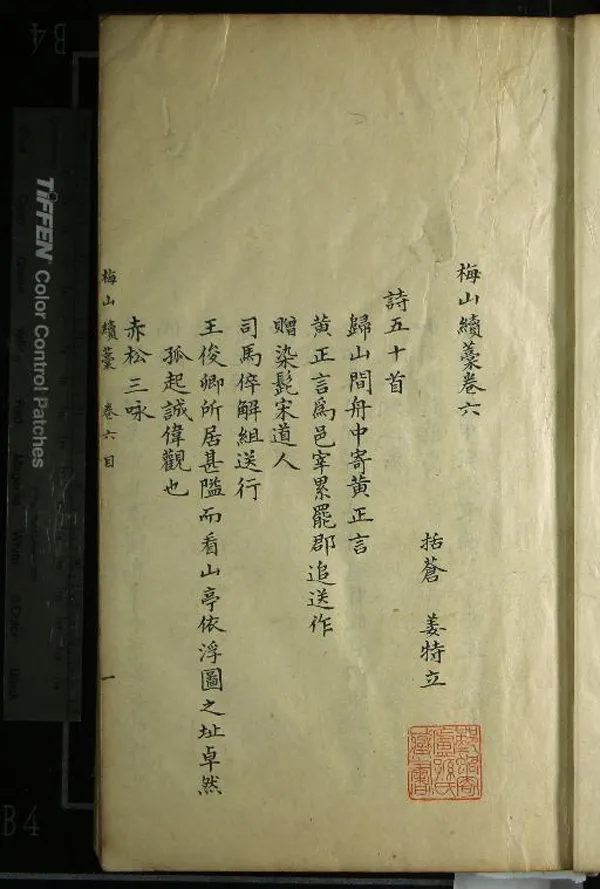 梅山續藁卷六
括蒼 姜特立
詩五十首
歸山間舟中寄黄正言
黄正言爲邑宰累罷郡追送作
贈染髭宋道人
司馬倅解組送行
王俊卿所居甚隘而看山亭依浮圖之址卓然
孤起誠偉觀也
赤松三咏
梅山續藁 卷六目 一
TIFFEN Color Control Patches
B4
B4